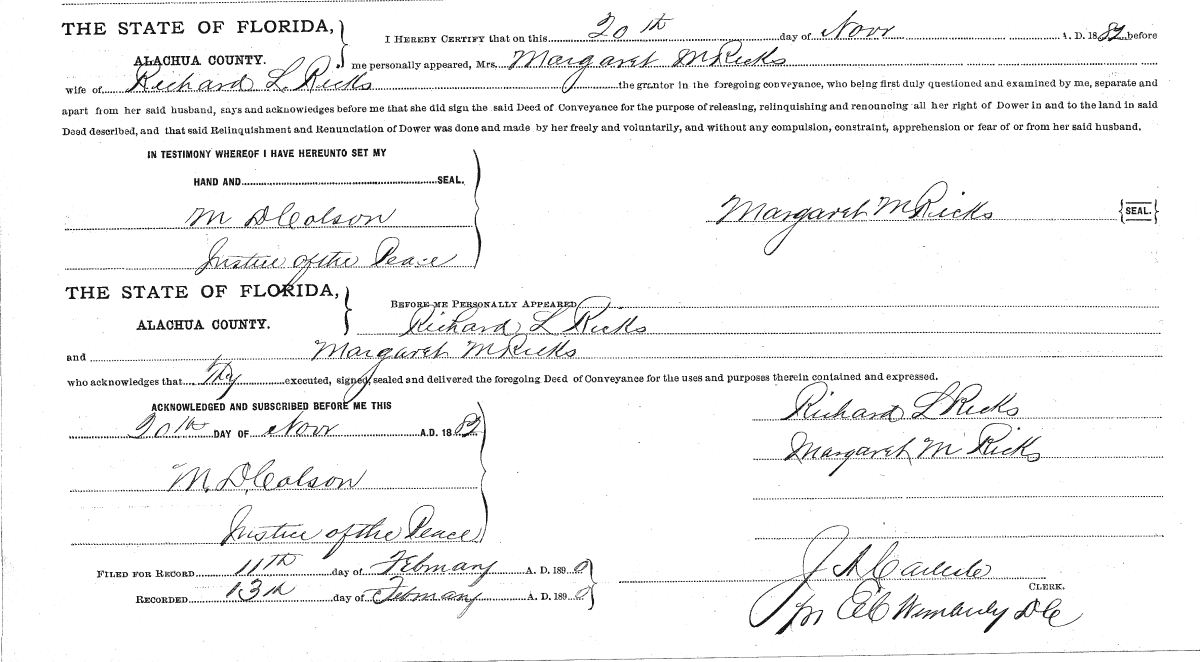 THE STATE OF FLORIDA,
ALACHUA COUNTY.
I HEREBY CERTIFY that on this 20th day of Novr A. D. 1889 before
me personally appeared, Mrs. Margaret M Ricks
wife of Richard L. Ricks the grantor in the foregoing conveyance, who being first duly questioned and examined by me, separate and
apart from her said husband, says and acknowledges before me that she did sign the said Deed of Conveyance for the purpose of releasing, relinquishing and renouncing all her right of Dower in and to the land in said
Deed described, and that said Relinquishment and Renunciation of Dower was done and made by her freely and voluntarily, and without any compulsion, constraint, apprehension or fear of or from her said husband.
IN TESTIMONY WHEREOF I HAVE HEREUNTO SET MY
HAND AND SEAL.
M D Colson
Justice of the Peace
Margaret M Ricks {SEAL.}
THE STATE OF FLORIDA,
ALACHUA COUNTY.
BEFORE ME PERSONALLY APPEARED
Richard L Ricks
and Margaret M Ricks
who acknowledges that They executed, signed, sealed and delivered the foregoing Deed of Conveyance for the uses and purposes therein contained and expressed.
ACKNOWLEDGED AND SUBSCRIBED BEFORE ME THIS
20th DAY OF Novr A.D. 1889
M. D. Colson
Justice of the Peace
Richard L Ricks
Margaret M Ricks
FILED FOR RECORD 11th day of February A. D. 1890
RECORDED 13th day of February A. D. 1890
J A Carlisle
CLERK.
E C Wimberly D C